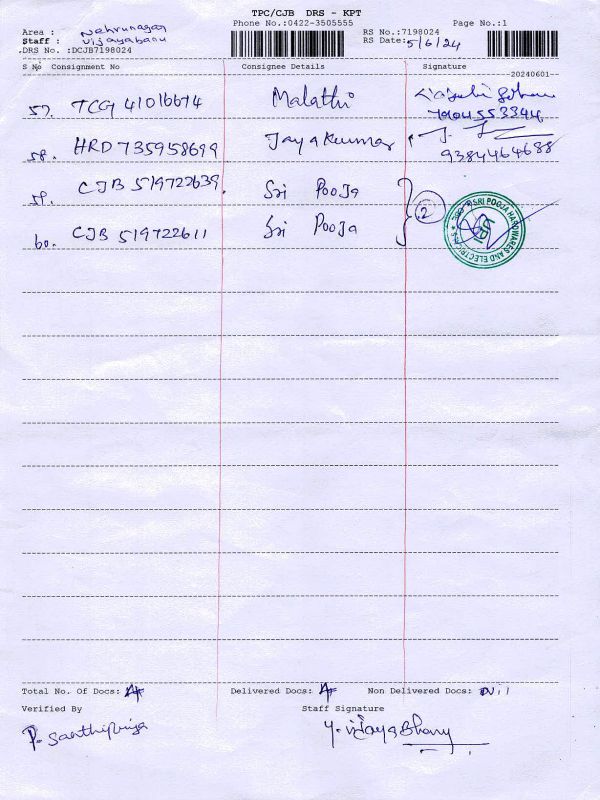 TPC/CJB DRS - KPT
Phone No.:0422-3505555
Page No.:1
Area : Nehrunagar
Staff : Vijayabanu
DRS No. :DCJB7198024
RS No.:7198024
RS Date:5/6/24
S No Consignment No Consignee Details Signature
20240601
57. TCG 41016674 Malathi
7904553344
58. HRD 735958699 Jayakumar
9384464688
59. CJB 519722639 Sri Pooja
2
SRI POOJA HARDWARES AND ELECTRICALS
60. CJB 519722611 Sri Pooja
Total No. Of Docs: 4 Delivered Docs: 4 Non Delivered Docs: Nil
Verified By Staff Signature
P. Santhipriya Y. Vijaya Bhanu